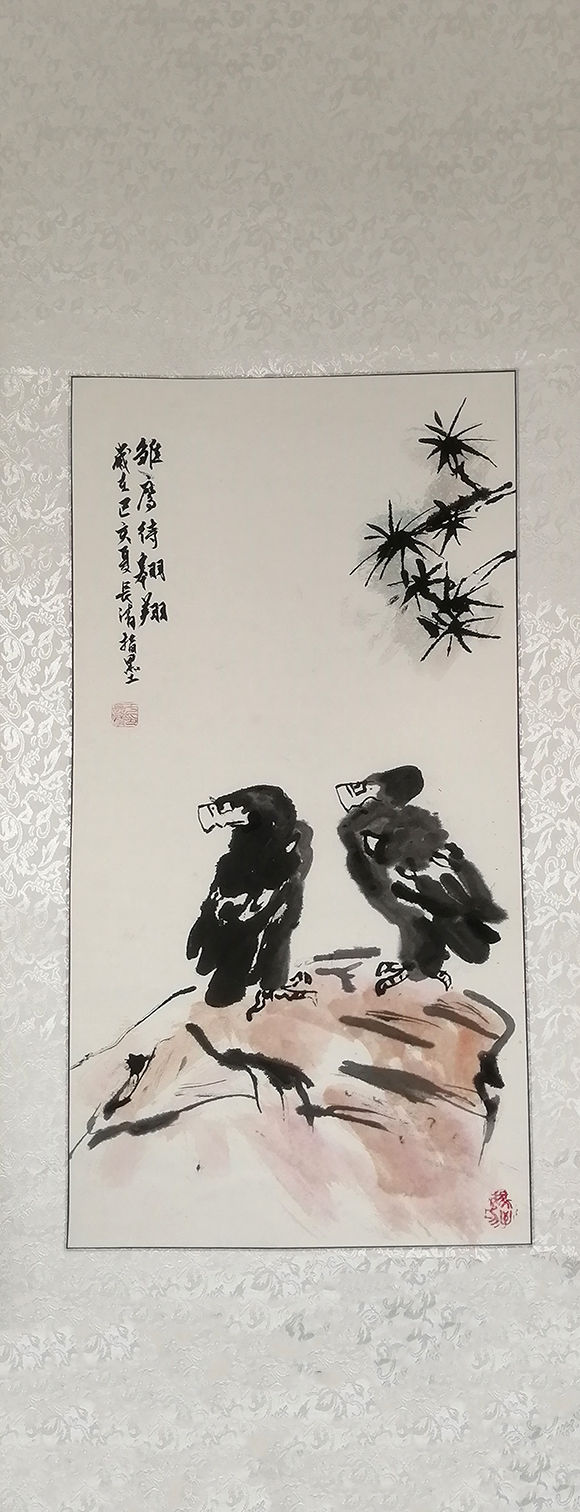 雏鹰待翱翔
岁在己亥夏长清指墨